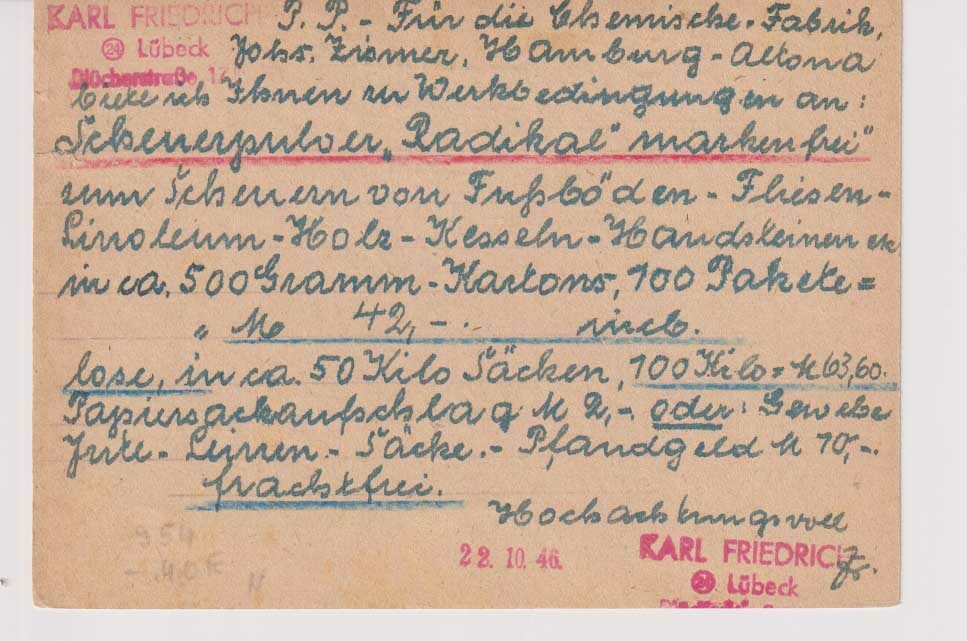 KARL FRIEDRICH P. P. - Für die Chemische-Fabrik,
24 Lübeck Johs. Zismer, Hamburg-Altona
Blücherstraße 17
biete ich Ihnen zu Werkbedingungen an:
Scheuerpulver „Radikal" markenfrei"
zum Scheuern von Fußböden - Fliesen -
Linoleum - Holz - Kesseln - Handsteinen etc
in ca. 500 Gramm - Kartons, 100 Pakete =
„ M 42,-. incl.
lose, in ca. 50 Kilo Säcken, 100 Kilo = M 63,60.
Papiersackaufschlag M 2,- oder: Gewebe
Jute - Leinen - Säcke. - Pfandgeld M 10,-.
frachtfrei.
Hochachtungsvoll
22. 10. 46. KARL FRIEDRICH
24 Lübeck
954